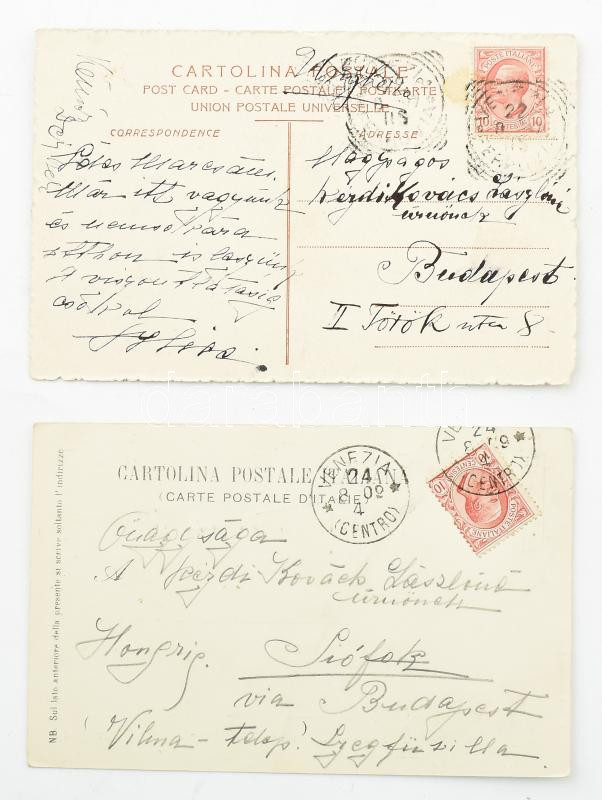 CARTOLINA POSTALE
POST CARD - CARTE POSTALE - POSTKARTE
UNION POSTALE UNIVERSELLE
CORRESPONDENCE
ADRESSE:
már itt vagyunk
és nemsokára
itthon is leszünk
A viszontlátásig
csókol
Nagyságos
Kézdi Kovács Lászlóné
úrnőnek
Budapest.
I Török utca 8.
POSTE ITALIANE
10
CENTESIMI
10
22
CARTOLINA POSTALE ITALIANA
(CARTE POSTALE D'ITALIE)
VENEZIA
24
8 09
4
(CENTRO)
VE
24
8 09
4
(CENTRO)
POSTE ITALIANE
10
CENTESIMI
10
Őnagysága
A Kézdi Kovách Lászlóné
úrnőnek
Hongrig.
Siófok
via Budapest
(Vilma-telep!
NB Sul lato anteriore della presente si scrive soltanto l'indirizzo